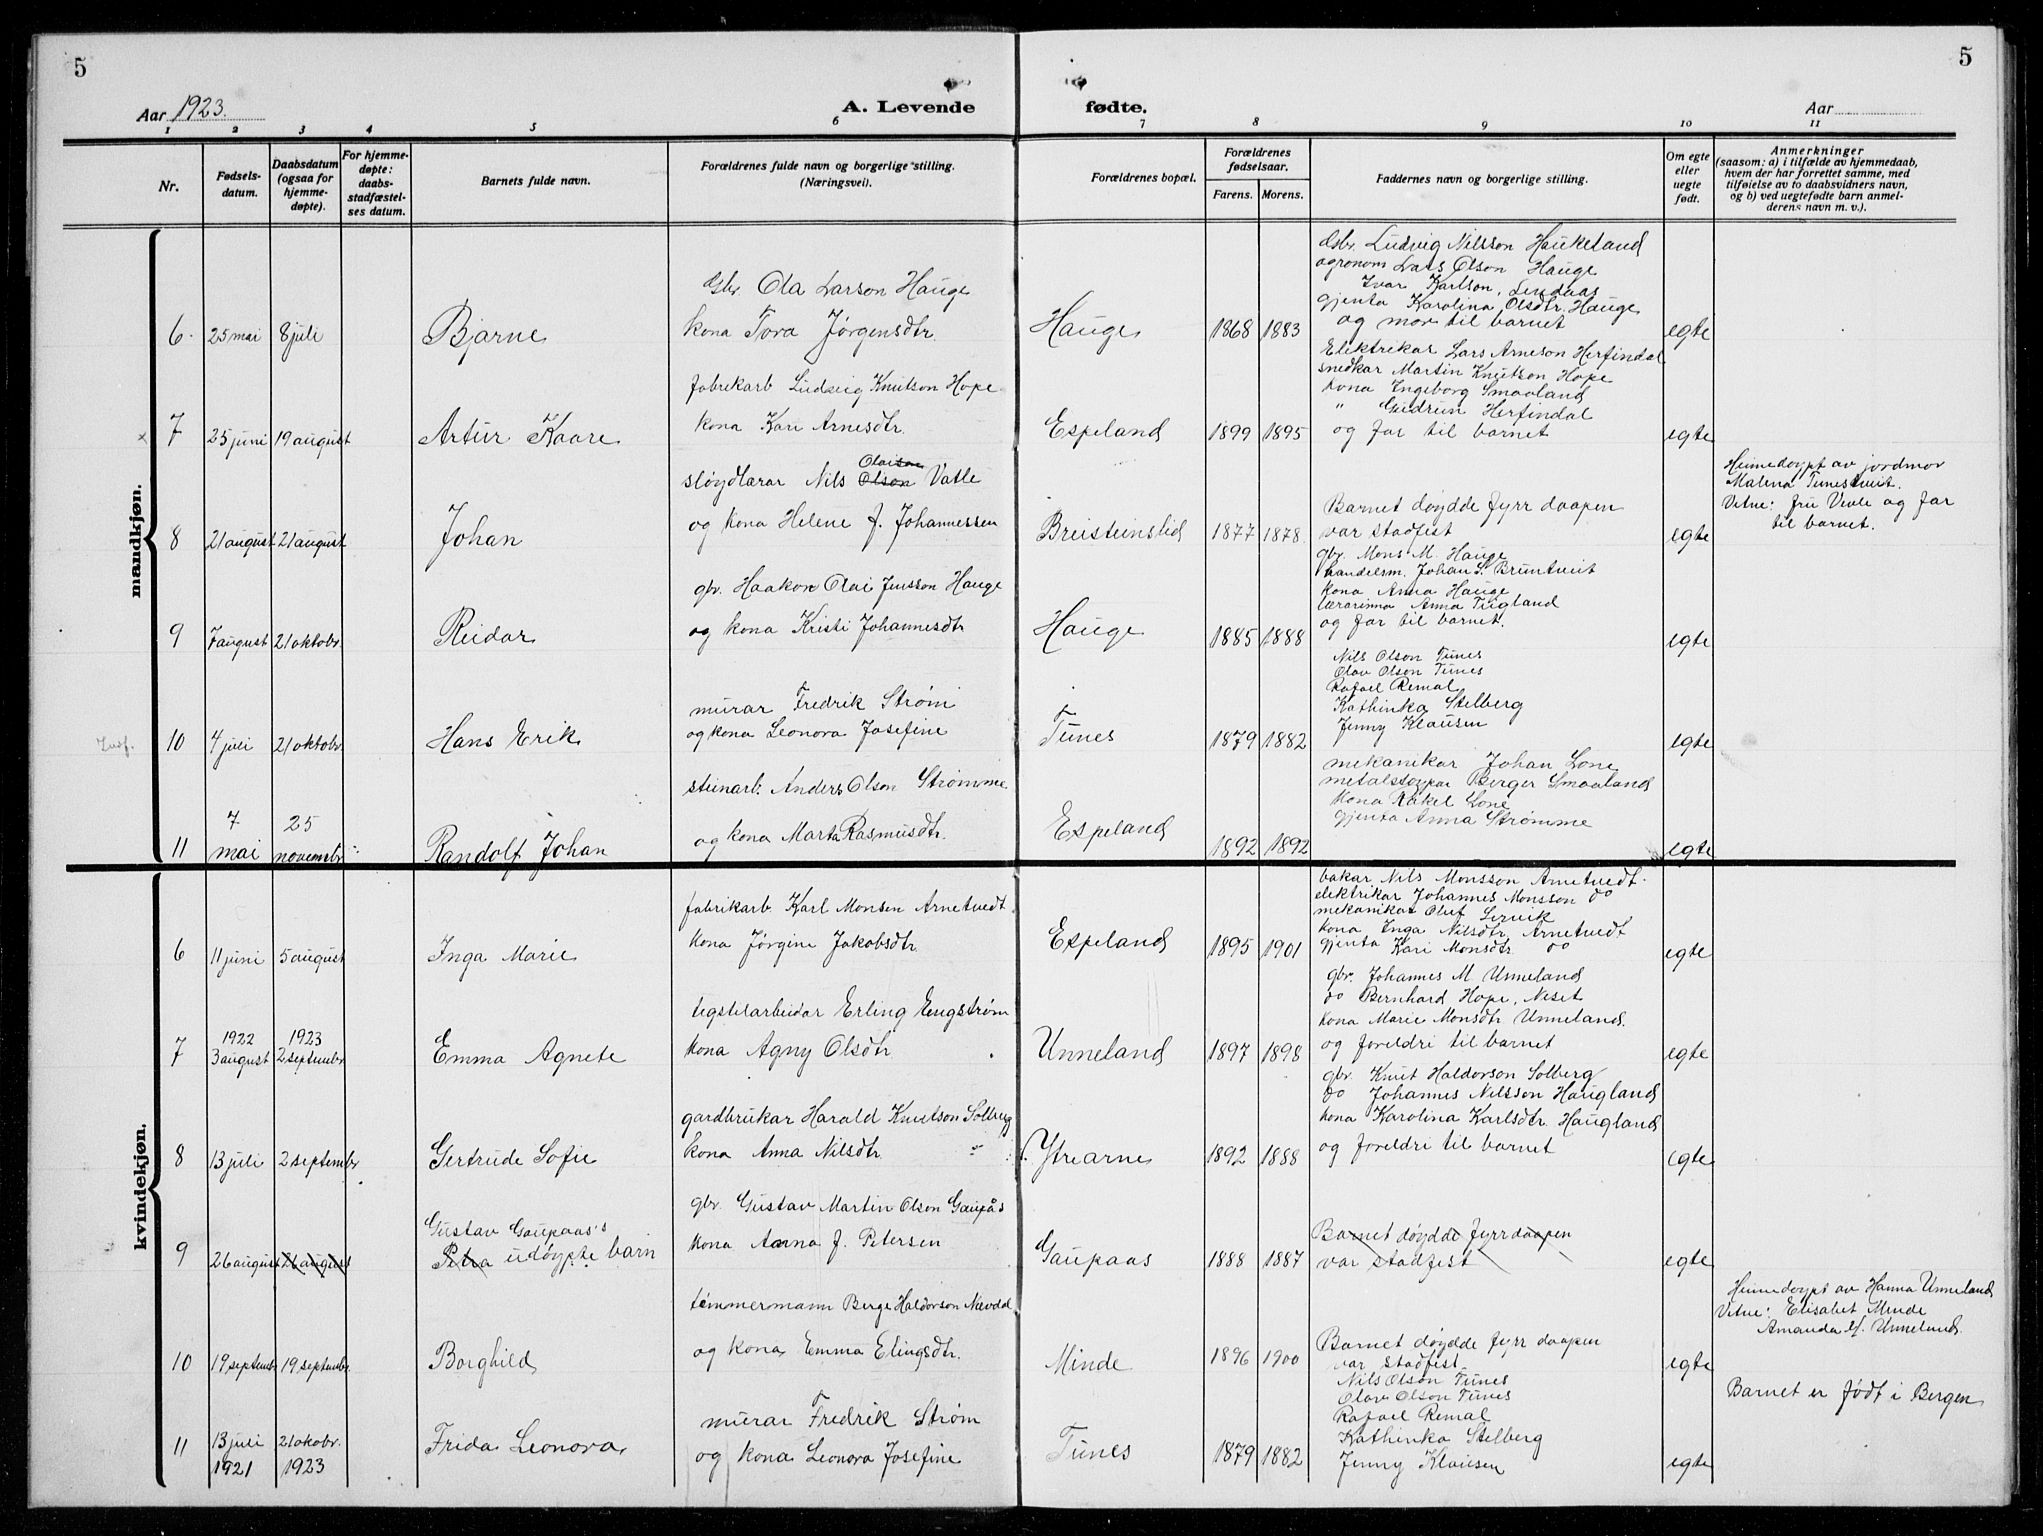 5
5
Aar 1923.
A. Levende
fødte.
Aar
1 2 3 4 5 6 7 8 9 10 11
Nr.
Fødsels-
datum.
Daabsdatum
(ogsaa for
hjemme-
døpte).
For hjemme-
døpte:
daabs-
stadfæstel-
ses datum.
Barnets fulde navn.
Forældrenes fulde navn og borgerlige stilling.
(Næringsvei).
Forældrenes bopæl.
Forældrenes
fødselsaar.
Farens. Morens.
Faddernes navn og borgerlige stilling.
Om egte
eller
uegte
født.
Anmerkninger
(saasom: a) i tilfælde av hjemmedaab,
hvem der har forrettet samme, med
tilføielse av to daabsvidners navn,
og b) ved uegtefødte barn anmel-
derens navn m. v.).
mandkjøn.
Gbr. Ola Larson Hauge
6 25 mai 8 juli Bjarne kona Tora Jørgensdtr. Hauge 1868 1883 egte
Gbr. Ludvig Nilsson Haukeland
agronom Lars Olson Hauge
Ivar Karlson, Lindaas
gjenta Karolina Olsdtr. Hauge
og mor til barnet
fabrikarb. Ludvig Knutson Hope
x 7 25 juni 19 august Artur Kaare kona Kari Arnesdtr. Espeland 1899 1895 egte
Elektrikar Lars Arneson Herfindal
snedkar Martin Knutson Hope
kona Ingeborg Smaaland
" Gudrun Herfindal
og far til barnet
Olaison
sløydlærar Nils Olson Vatle
8 21 august 21 august Johan og kona Helene f. Johannessen Breisteinslid 1877 1878 egte
Barnet døydde fyrr daapen
var stadfest
Heimedøypt av jordmor
Malena Tunestveit.
Vitne: fru Vevle og far
til barnet.
gbr. Haakon Olai Jensson Hauge
9 7 august 21 oktobr. Reidar og kona Kristi Johannesdtr Hauge 1885 1888 egte
gbr. Mons M. Hauge
handelsm. Johan S. Bruntveit
kona Anna Hauge
lærarinna Anna Tugland
og far til barnet.
murar Fredrik Strøm
10 4 juli 21 oktobr. Hans Erik og kona Leonora Josefine Tunes 1879 1882 egte
Nils Olson Tunes
Olav Olson Tunes
Rafael Remal
Kathinka Stelberg
Jenny Klausen
steinarb. Anders Olson Strømme
11 7 mai 25 novembr. Randolf Johan og kona Marta Rasmusdtr. Espeland 1892 1892 egte
mekanikar Johan Lone
metalstøypar Berger Smaaland
kona Rakel Lone
gjenta Anna Strømme
kvindekjøn.
fabrikarb. Karl Monsen Arnetvedt
6 11 juni 5 august Inga Marie kona Jørgine Jakobsdtr. Espeland 1895 1901 egte
bakar Nils Monsson Arnetvedt.
elektrikar Johannes Monsson do
mekanikar Oluf Lervik
kona Inga Nilsdtr. Arnetvedt
gjenta Kari Monsdtr. do
tegstilarbeidar Erling Engstrøm
7 1922 3 august 1923 2 septembr Emma Agnete kona Agny Olsdtr. Unneland 1897 1898 egte
gbr. Johannes M. Unneland
do Bernhard Hope, Neset
kona Marie Monsdtr Unneland.
og foreldri til barnet
gardbrukar Harald Knutson Solberg
8 13 juli 2 septembr Gertrude Sofie kona Anna Nilsdtr " Ytrearne 1892 1888 egte
gbr. Knut Haldorson Solberg
do Johannes Nilsson Haugland
kona Karolina Karlsdtr. Haugland
og foreldri til barnet
gbr. Gustav Martin Olson Gaupås
Gustav Gaupaas's
9 26 august 26 august Petra udøypte barn kona Anna f. Petersen Gaupaas 1888 1887 egte
Barnet døydde fyrr daapen
var stadfest
tømmermann Berge Haldorson Nævdal
10 19 septembr 19 septembr. Borghild og kona Emma Elingsdtr. Minde 1896 1900 egte
Barnet døydde fyrr daapen
var stadfest
Heimedøypt av Hanna Unneland
Vitne: Elisabet Minde
Amanda M. Unneland.
murar Fredrik Strøm
11 13 juli 1921 21 okobr. 1923 Frida Leonora og kona Leonora Josefine Tunes 1879 1882 egte
Nils Olson Tunes
Olav Olson Tunes
Rafael Remal
Kathinka Stelberg
Jenny Klausen
Barnet er født i Bergen